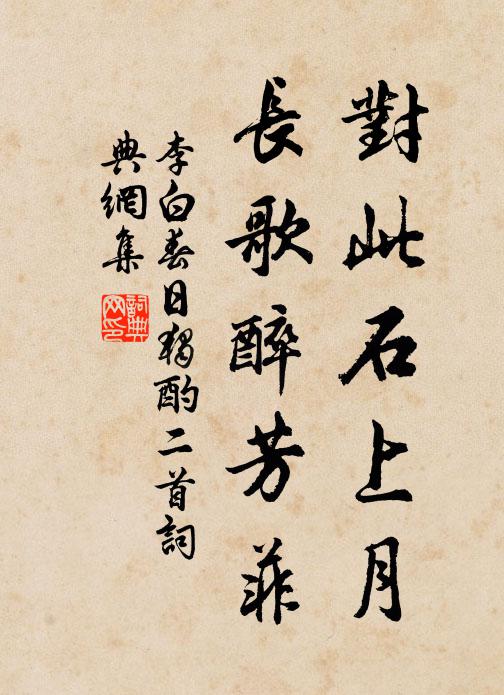 對此石上月
長歌醉芳菲
李白春日獨酌二首詞
典網集
詞典
网印